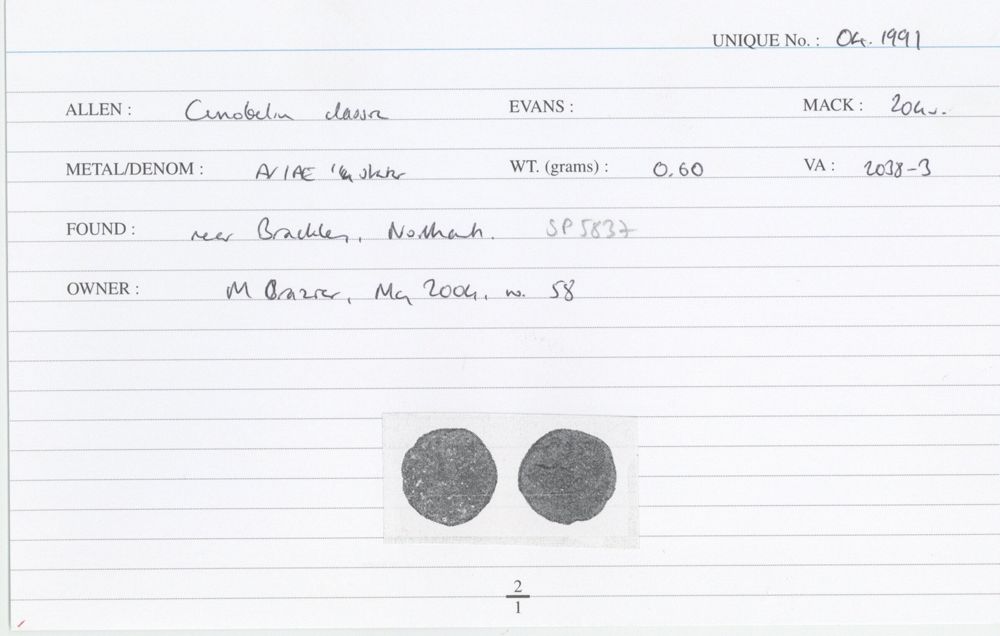 UNIQUE No. : 04.1991
ALLEN : Cunobelin classic EVANS : MACK : 204v.
METAL/DENOM : AV/AE ¼ stater WT. (grams) : 0.60 VA : 2038-3
FOUND : near Brackley, Northants. SP5837
OWNER : M Brazier, May 2004, no. 58
2
1